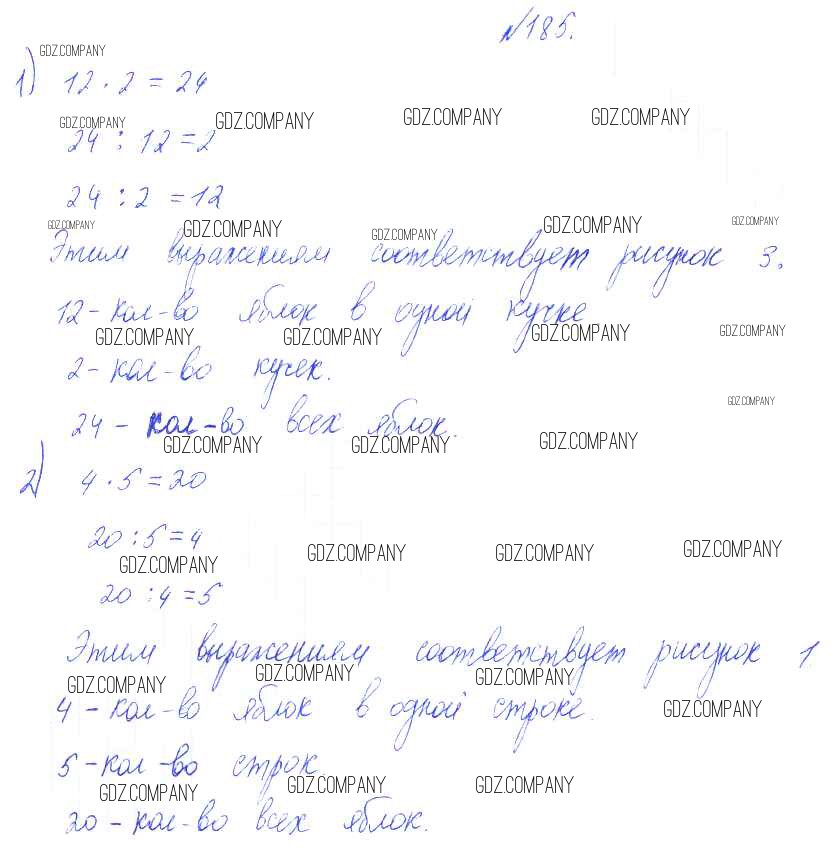 №185.
GDZ.COMPANY
1) 12 · 2 = 24
GDZ.COMPANY GDZ.COMPANY GDZ.COMPANY GDZ.COMPANY
24 : 12 = 2
24 : 2 = 12
GDZ.COMPANY GDZ.COMPANY GDZ.COMPANY GDZ.COMPANY GDZ.COMPANY
Этим выражениям соответствует рисунок 3.
12 - кол-во яблок в одной кучке
GDZ.COMPANY GDZ.COMPANY GDZ.COMPANY GDZ.COMPANY
2 - кол-во кучек.
GDZ.COMPANY
24 - кол-во всех яблок.
GDZ.COMPANY GDZ.COMPANY GDZ.COMPANY
2) 4 · 5 = 20
20 : 5 = 4
GDZ.COMPANY GDZ.COMPANY GDZ.COMPANY GDZ.COMPANY
20 : 4 = 5
Этим выражениям соответствует рисунок 1
GDZ.COMPANY GDZ.COMPANY GDZ.COMPANY
4 - кол-во яблок в одной строке.
GDZ.COMPANY
5 - кол-во строк
GDZ.COMPANY GDZ.COMPANY GDZ.COMPANY
20 - кол-во всех яблок.